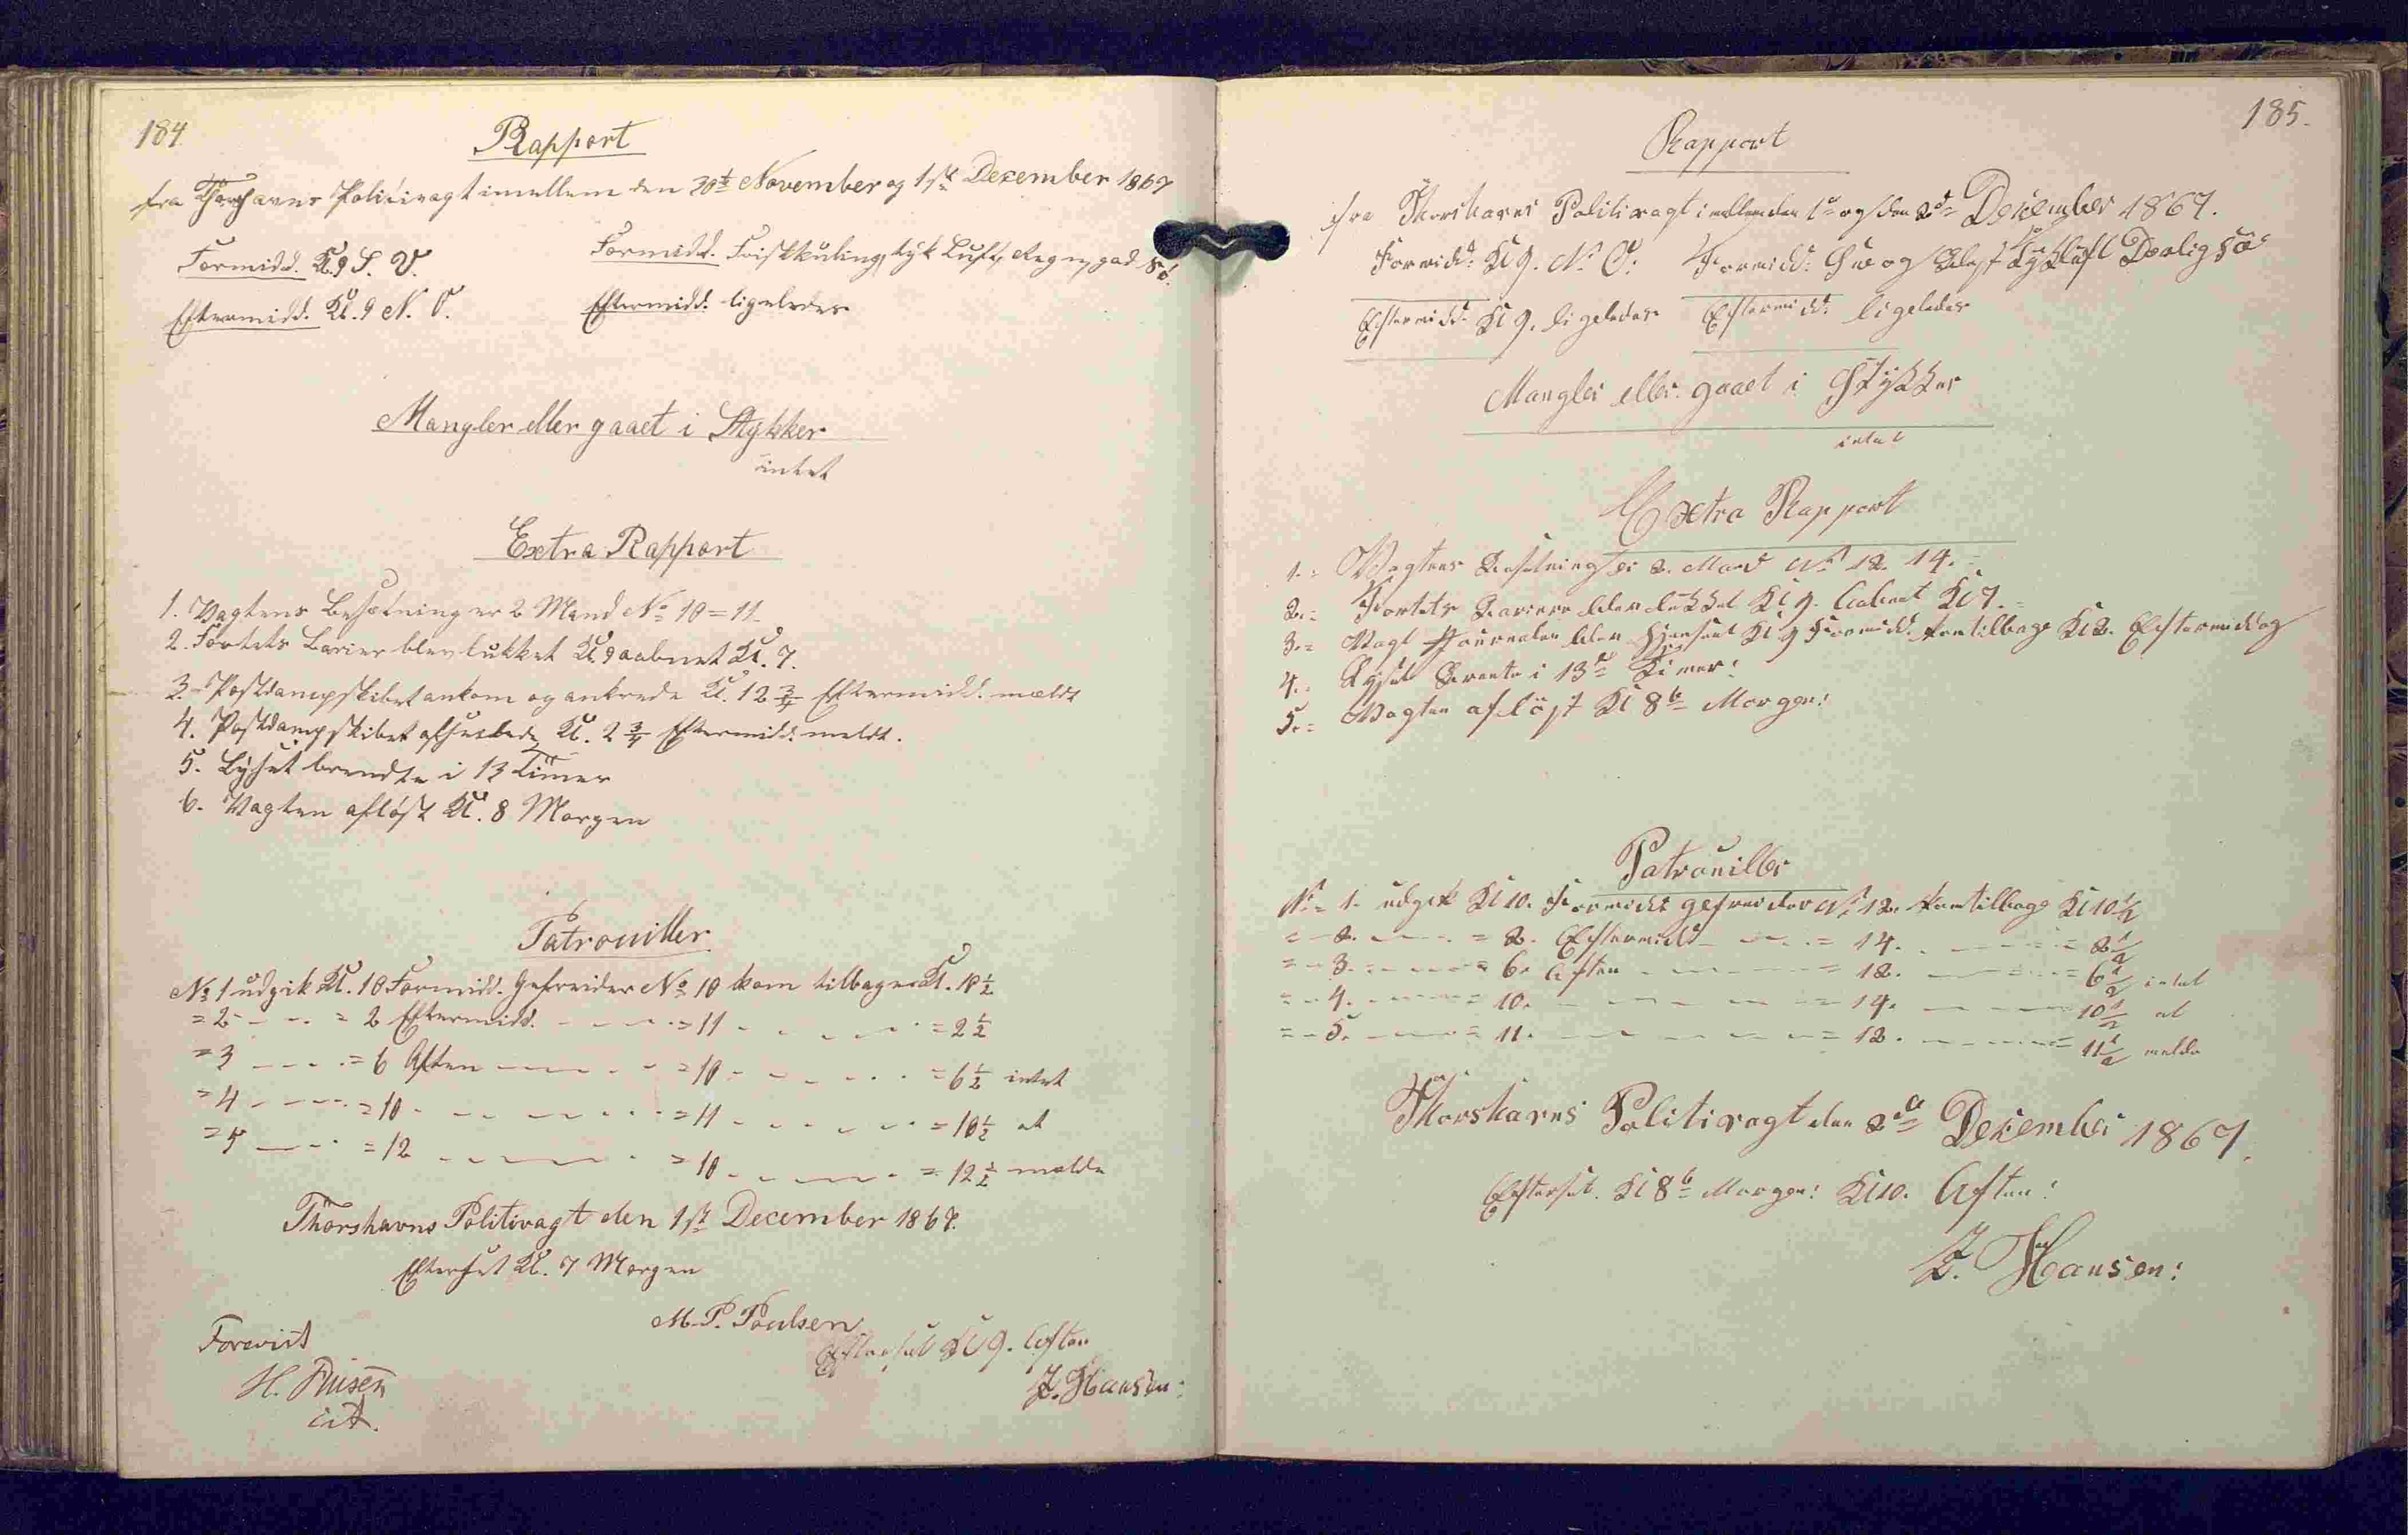 184.
Rapport
fra Thorshavns Politivagt imellem den 30te November og 1ste December 1867
Formidd. Kl. 9 S. V.
Formidd. Friskkuling, tyk Luft, Regn, god Sø.
Eftermidd. Kl. 9 N. V.
Eftermidd. ligeledes
Mangler eller gaaet i Stykker
intet
Extra Rapport
1. Vagtens Besætning er 2 Mand No 10 = 11.
2. Fortets Barier blev lukket Kl. 9 aabnet Kl. 7.
3. Postdampskibet ankom og ankrede Kl. 12 3/4 Eftermidd. meldt
4. Postdampskibet afseilede Kl. 2 3/4 Eftermidd. meldt.
5. Lyset brendte i 13 Timer
6. Vagten afløst Kl. 8 Morgen
Patrouiller
No 1 udgik Kl. 10 Formidd. Gefreider No 10 kom tilbage Kl. 10 1/2
= 2 - - - = 2 Eftermidd. - - - = 11 - - - = 2 1/2
= 3 - - - = 6 Aften - - - = 10 - - - = 6 1/2 intet
= 4 - - - = 10 - - - = 11 - - - = 10 1/2 at
= 5 - - - = 12 - - - = 10 - - - = 12 1/2 melde
Thorshavns Politivagt den 1ste December 1867.
Efterset Kl. 7 Morgen
M. P. Poulsen
Efterset Kl 9. Aften
Forevist
Z. Hansen:
185.
Rapport
fra Thorshavns Politivagt imellem den 1te og den 2den December 1867.
Formidd: Kl 9. N. O: Formidd: Sne og Tykluft Daarlig Sø
Eftermidd. Kl 9. ligeledes Eftermidd: ligeledes
Mangler eller gaaet i Stykker
intet
Extra Rapport
1.= Vagtens Besetning er 2. Mand No 12. 14.
2.= Fortets Bariere blev lukket Kl 9. Aabnet Kl 7.
3.= Vagt Journalen blev hjemsent Kl 9 Formidd. kom tilbage Kl 2. Eftermiddag
4.= Lyset Brente i 13 Timer:
5.= Vagten afløst Kl 8 Morgen:
Patrouiller
No 1. udgik Kl 10. Formidd gefreider No 12. kom tilbage Kl 10 1/2
= - 2. - - - = 2. Eftermidd - - - = 14. - - - = 2 1/2
= - 3. - - - = 6. Aften - - - = 12. - - - = 6 1/2 intet
= - 4. - - - = 10. - - - = 14. - - - 10 1/2 at
= - 5. - - - = 11. - - - = 12. - - - = 11 1/2 melde
Thorshavns Politivagt den 2den December 1867.
Efterset. Kl 8 Morgen: Kl 10. Aften:
Z. Hansen: